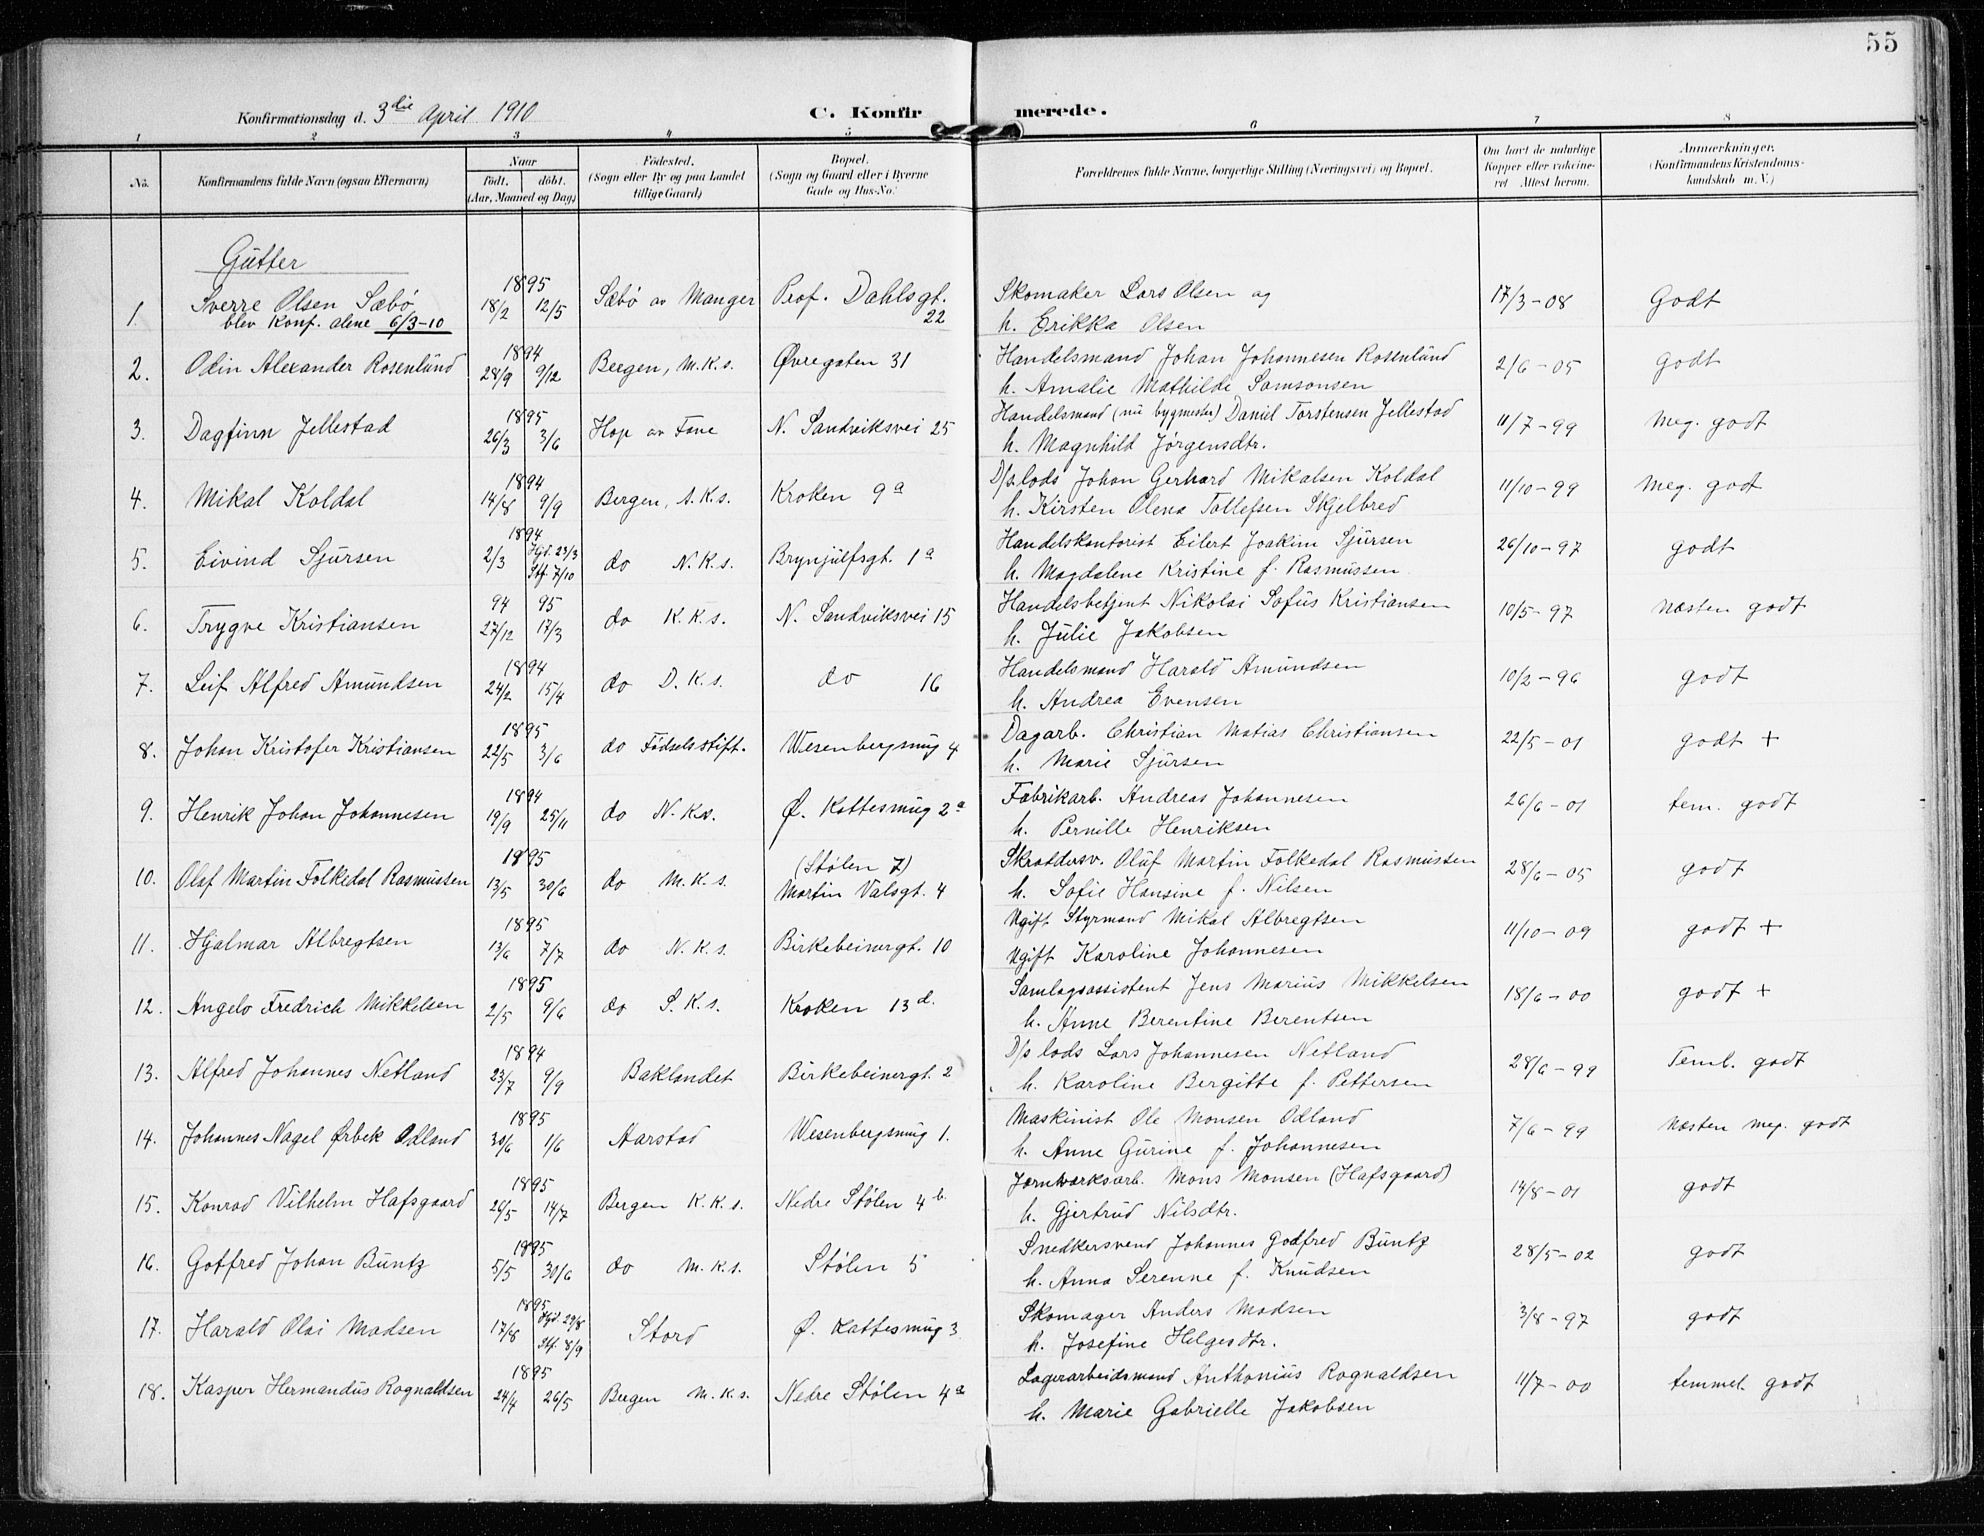 55
Konfirmationsdag d. 3die April 1910 C. Konfirmerede.
1 2 3 4 5 6 7 8
No. Konfirmandens fulde Navn (ogsaa Efternavn) Naar født. døbt. (Aar, Maaned og Dag) Fødested. (Sogn eller By og paa Landet tillige Gaard) Bopæl. (Sogn og Gaard eller i Byerne Gade og Hus-No.) Forældrenes fulde Navne, borgerlige Stilling (Næringsvei) og Bopæl. Om havt de naturlige Kopper eller vaccineret. Attest herom. Anmærkninger. (Konfirmandens Kristendomskundskab m. V.)
Gutter
1. Sverre Olsen Sæbø 1895 18/2 12/5 Sæbø av Manger Prof. Dahlsgt. 22 Skomaker Lars Olsen og 17/3-08 Godt
blev konf. alene 6/3-10 h. Erikka Olsen
2. Odin Alexander Rosenlund 1894 28/9 9/12 Bergen, M.K.s. Øvregaten 31 Handelsmand Johan Johannesen Rosenlund 2/6-05 godt
h. Amalie Mathilde Samsonsen
3. Dagfinn Jellestad 1895 26/3 3/6 Hop av Fane N. Sandviksvei 25 Handelsmand (nu bygmester) Daniel Torstensen Jellestad 11/7-99 Meg. godt
h. Magnhild Jørgensdtr.
4. Mikal Koldal 1894 14/8 9/9 Bergen, s.K.s. Kroken 9a D/s.lods Johan Gerhard Mikalsen Koldal 11/10-99 Meg. godt
h. Kirsten Olena Tollefsen Skjelbred
5. Eivind Sjursen 1894 2/3 Hjd. 23/3 Stf. 7/10 do N.K.s. Brynjulfsgt. 1a Handelskontorist Eilert Joakim Sjursen 26/10-97 godt
h. Magdalene Kristine f. Rasmussen
6. Trygve Kristiansen 94 27/12 95 17/3 do K.K.s. N. Sandviksvei 15 Handelsbetjent Nikolai Sofus Kristiansen 10/5-97 Næsten godt
h. Julie Jakobsen
7. Leif Alfred Amundsen 1894 24/2 15/4 do D.K.s. do 16 Handelsmand Harald Amundsen 10/2-96 godt
h. Andrea Evensen
8. Johan Kristofer Kristiansen 1895 22/5 3/6 do Fødselsstift. Wesenbergsmug 4 Dagarb. Christian Matias Christiansen 22/5-01 godt +
h. Marie Sjursen
9. Henrik Johan Johannesen 1894 19/9 25/11 do N.K.s. Ø. Kattesmug 2a Fabrikarb. Andreas Johannesen 26/6-01 tem. godt
h. Pernille Henriksen
10. Olaf Martin Folkedal Rasmussen 1895 13/5 30/6 do M.K.s. (Stølen 7) Martin Valsgt. 4 Skrædersv. Oluf Martin Folkedal Rasmussen 28/6-05 godt
h. Sofie Hansine f. Nilsen
11. Hjalmar Albregtsen 1895 13/6 7/7 do N.K.s. Birkebeinergt. 10 Ugift Styrmand Mikal Albregtsen 11/10-09 godt +
Ugift Karoline Johannesen
12. Angelo Fredrich Mikkelsen 1895 2/5 9/6 do S.K.s. Kroken 13d. Samlagsassistent Jens Marius Mikkelsen 18/6-00 godt +
h. Anne Berentine Berentsen
13. Alfred Johannes Netland 1894 23/7 9/9 Baklandet Birkebeinergt. 2 D/s lods Lars Johannesen Netland 28/6-99 Teml. godt
h. Karoline Bergitte f. Pettersen
14. Johannes Nagel Ørbek Odland 1895 30/6 1/6 Aarstad Wesenbergsmug 1. Maskinist Ole Monsen Odland 7/6-99 Næsten meg. godt
h. Anne Gurine f. Johannesen
15. Konrad Vilhelm Hafsgaard 1895 26/5 14/7 Bergen K.K.s. Nedre Stølen 4b. Jernverksarb. Mons Monsen (Hafsgaard) 14/8-01 godt
h. Gjertrud Nilsdtr.
16. Gotfred Johan Buntz 1895 5/5 30/6 do M.K.s. Stølen 5 Snedkersvend Johannes Godfred Buntz 28/5-02 godt
h. Anna Serenne f. Knudsen
17. Harald Olai Madsen 1895 17/8 Hjd. 29/8 Stf. 8/9 Stord Ø. Kattesmug 3 Skomager Anders Madsen 3/8-97 godt
h. Josefine Helgesdtr.
18. Kasper Hermandus Rognaldsen 1895 24/4 26/5 Bergen M.K.s. Nedre Stølen 4a Lagerarbeidsmand Anthonius Rognaldsen 11/7-00 temmel. godt
h. Marie Gabrielle Jakobsen